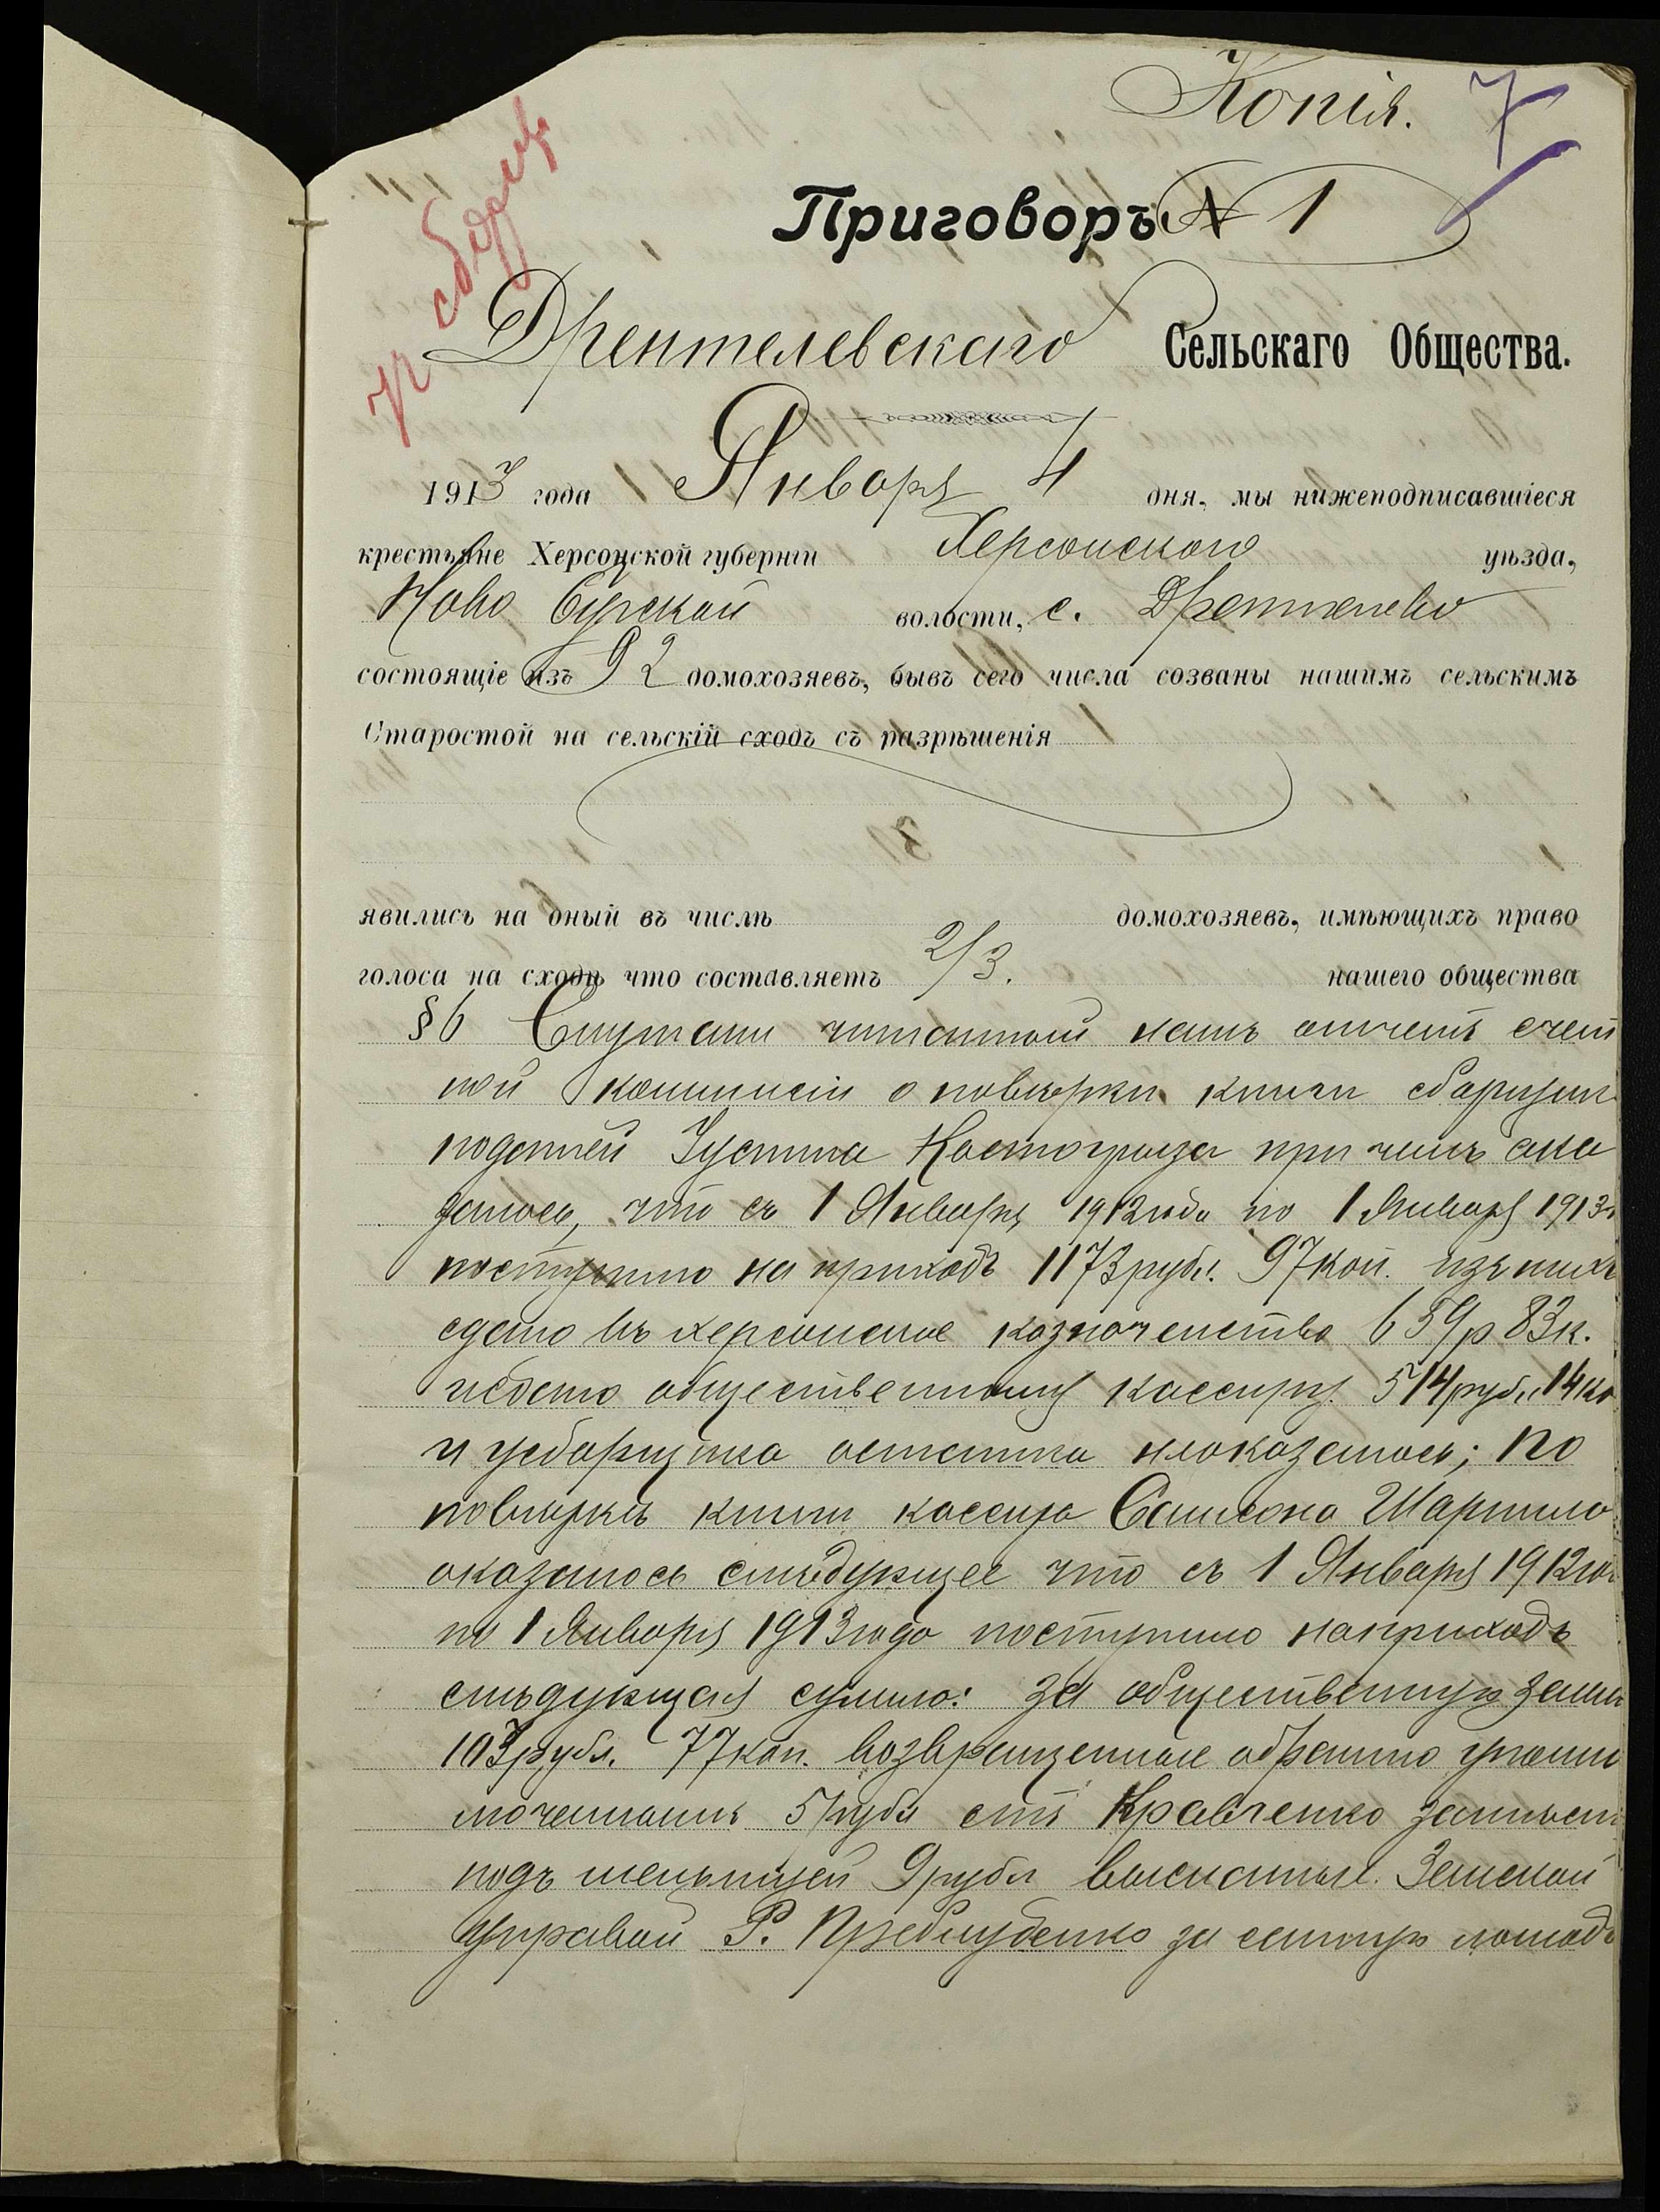 Копія. 7
Приговоръ № 1
Дрентелевскаго Сельскаго Общества.
1913 года Января 4 дня, мы нижеподписавшіеся
крестьяне Херсонской губерніи Херсонскаго уѣзда,
Ново Бугской волости, с. Дрентелево
состоящіе изъ 92 домохозяевъ, бывъ сего числа созваны нашимъ сельскимъ
Старостой на сельскій сходъ съ разрѣшенія
явились на оный въ числѣ домохозяевъ, имѣющихъ право
голоса на сходѣ что составляетъ 2/3. нашего общества
§ 6 Слушали читанный намъ отчетъ счет
ной комиссіи о повѣрки книги сборщик
податей Устина Костогрыза при чемъ ока
залось, что съ 1 Января 1912 года по 1 Января 1913 г
поступило на приходъ 1173 рубл. 97 коп. изъ нихъ
сдано въ херсонское казначейство 659 р 83 к.
исдано общественному кассиру. 514 рубл 14 ко
и усборщика остатка неоказалось; по
повѣркѣ книги кассира Самсона Шарпило
оказалось слѣдующее что съ 1 Января 1912 го
по 1 Января 1913 года поступило наприходъ
слѣдующая сумма: за общественную земл
103 рубл. 77 коп. возвращенные обратно упалн
моченнымъ 5 рубл отъ Кравченко за мѣст
подъ мельницей 9 рубл высланные. Земской
Управой Р. Преблуденко за салную лошадь